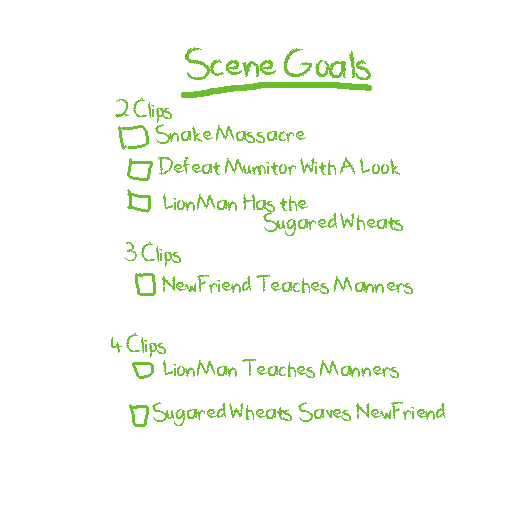 Scene Goals
2 Clips
Snake Massacre
Defeat Mumitor With A Look
LionMan Has the
SugaredWheats
3 Clips
NewFriend Teaches Manners
4 Clips
LionMan Teaches Manners
SugaredWheats Saves NewFriend